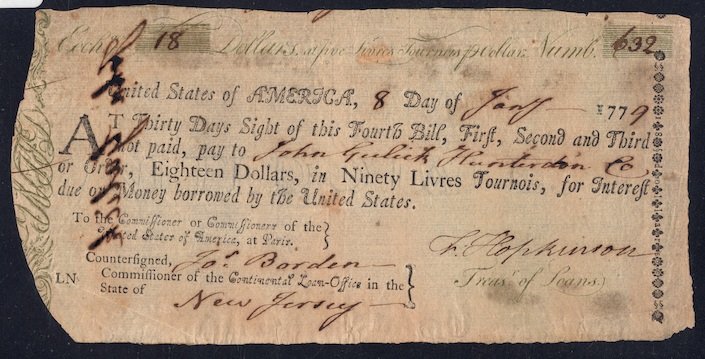 Exchᵃ 18 Dollars, at five Livres Tournois ℔ Dollar. Numb. 632
United States of AMERICA, 8 Day of Janʸ 1779
AT Thirty Days Sight of this Fourth Bill, First, Second and Third
not paid, pay to John Gulick Hunterdon Co
or Order, Eighteen Dollars, in Ninety Livres Tournois, for Interest
due on Money borrowed by the United States.
To the Commissioner or Commissioners of the
United States of America, at Paris.
F. Hopkinson
Treasʳ of Loans.
Countersigned, Joˢ Borden
LN Commissioner of the Continental Loan-Office in the
State of New Jersey